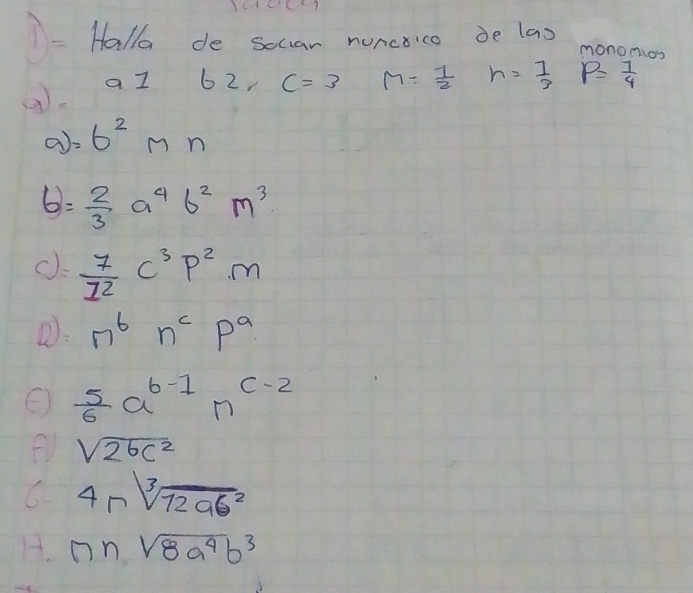 1)= Halla de sociar numerico de las monomios
a 1 b 2, c = 3 m = 1/2 n = 1/3 P = 1/4
a).
a)= b² m n
b)= 2/3 a⁴ b² m³
c)= 7/12 c³ p² m
D): m^b n^c p^a
E) 5/6 a^(b-1) n^(c-2)
F) √2bc²
G- 4m ∛12ab²
H. mn √8a⁴b³